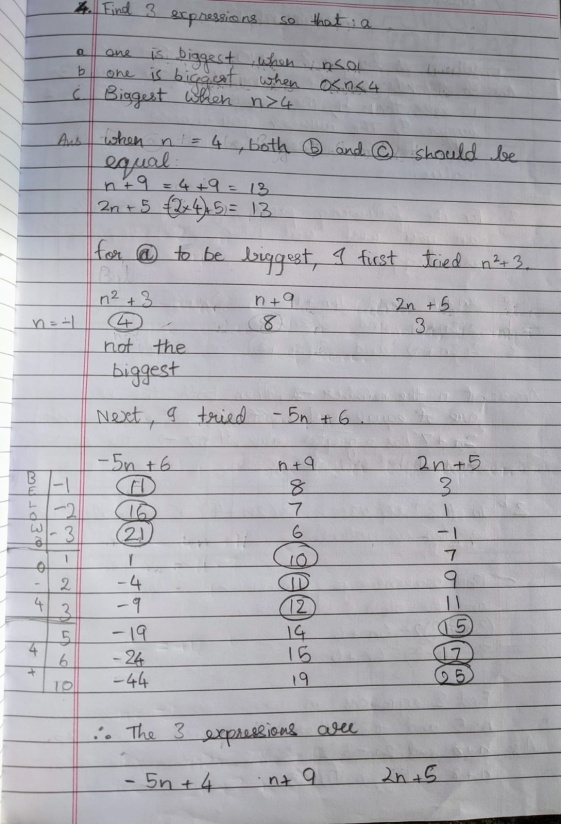 4. Find 3 expressions so that : a
a one is biggest when n<0
b one is biggest when 0<n<4
c Biggest when n>4
Ans when n = 4, both ⓑ and ⓒ should be
equal
n+9 = 4+9 = 13
2n+5 =(2×4)+5 = 13
for ⓐ to be biggest, I first tried n²+3.
n²+3 n+9 2n+5
n=-1 4 8 3
not the
biggest
Next, I tried -5n+6.
-5n+6 n+9 2n+5
BELOW 0
-1 11 8 3
-2 16 7 1
-3 21 6 -1
0-4
1 1 10 7
2 -4 11 9
3 -9 12 11
4+
5 -19 14 15
6 -24 15 17
10 -44 19 25
∴ The 3 expressions are
-5n+4 n+9 2n+5